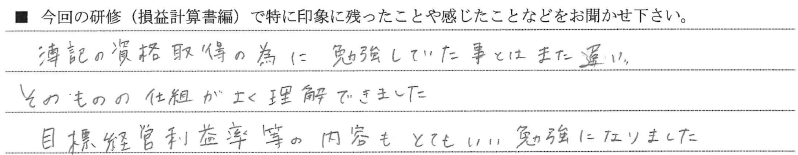 ■ 今回の研修（損益計算書編）で特に印象に残ったことや感じたことなどをお聞かせ下さい。
簿記の資格取得の為に勉強していた事とはまた違い、
そのものの仕組がよく理解できました
目標経営利益率等の内容もとてもいい勉強になりました